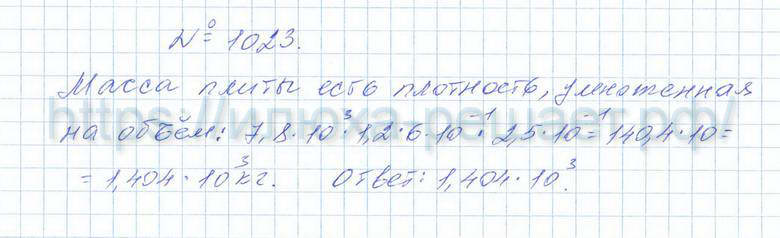 № 1023.
Масса плиты есть плотность, умноженная
на объём: 7,8·10³·1,2·6·10⁻¹·2,5·10⁻¹=140,4·10=
=1,404·10³кг. Ответ: 1,404·10³.
https://илюха-решает.рф/